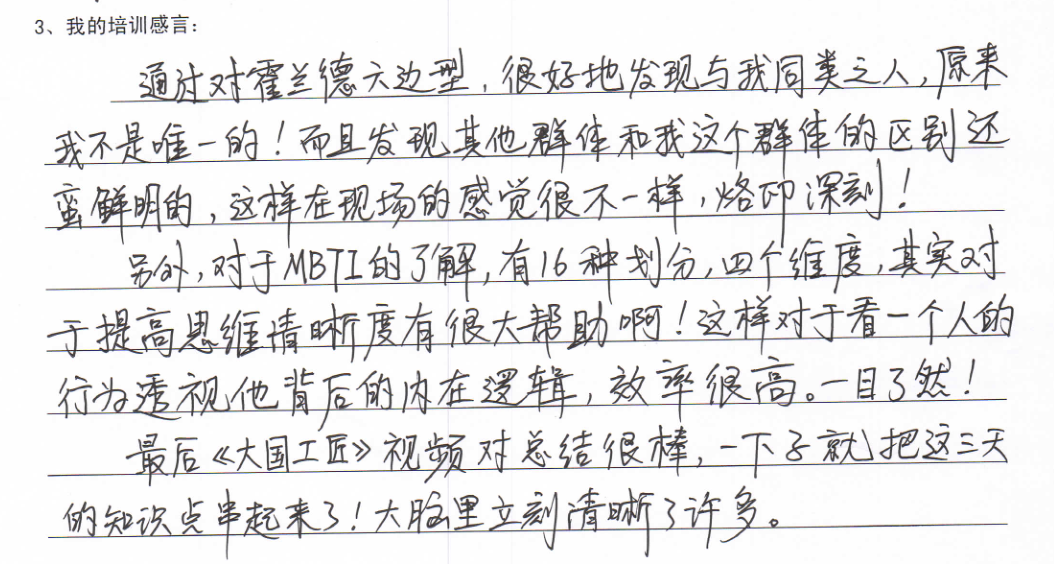 3、我的培训感言:
通过对霍兰德六边型，很好地发现与我同类之人，原来
我不是唯一的！而且发现其他群体和我这个群体的区别还
蛮鲜明的，这样在现场的感觉很不一样，烙印深刻！
另外，对于MBTI的了解，有16种划分，四个维度，其实对
于提高思维清晰度有很大帮助啊！这样对于看一个人的
行为透视他背后的内在逻辑，效率很高。一目了然！
最后《大国工匠》视频对总结很棒，一下子就把这三天
的知识点串起来了！大脑里立刻清晰了许多。